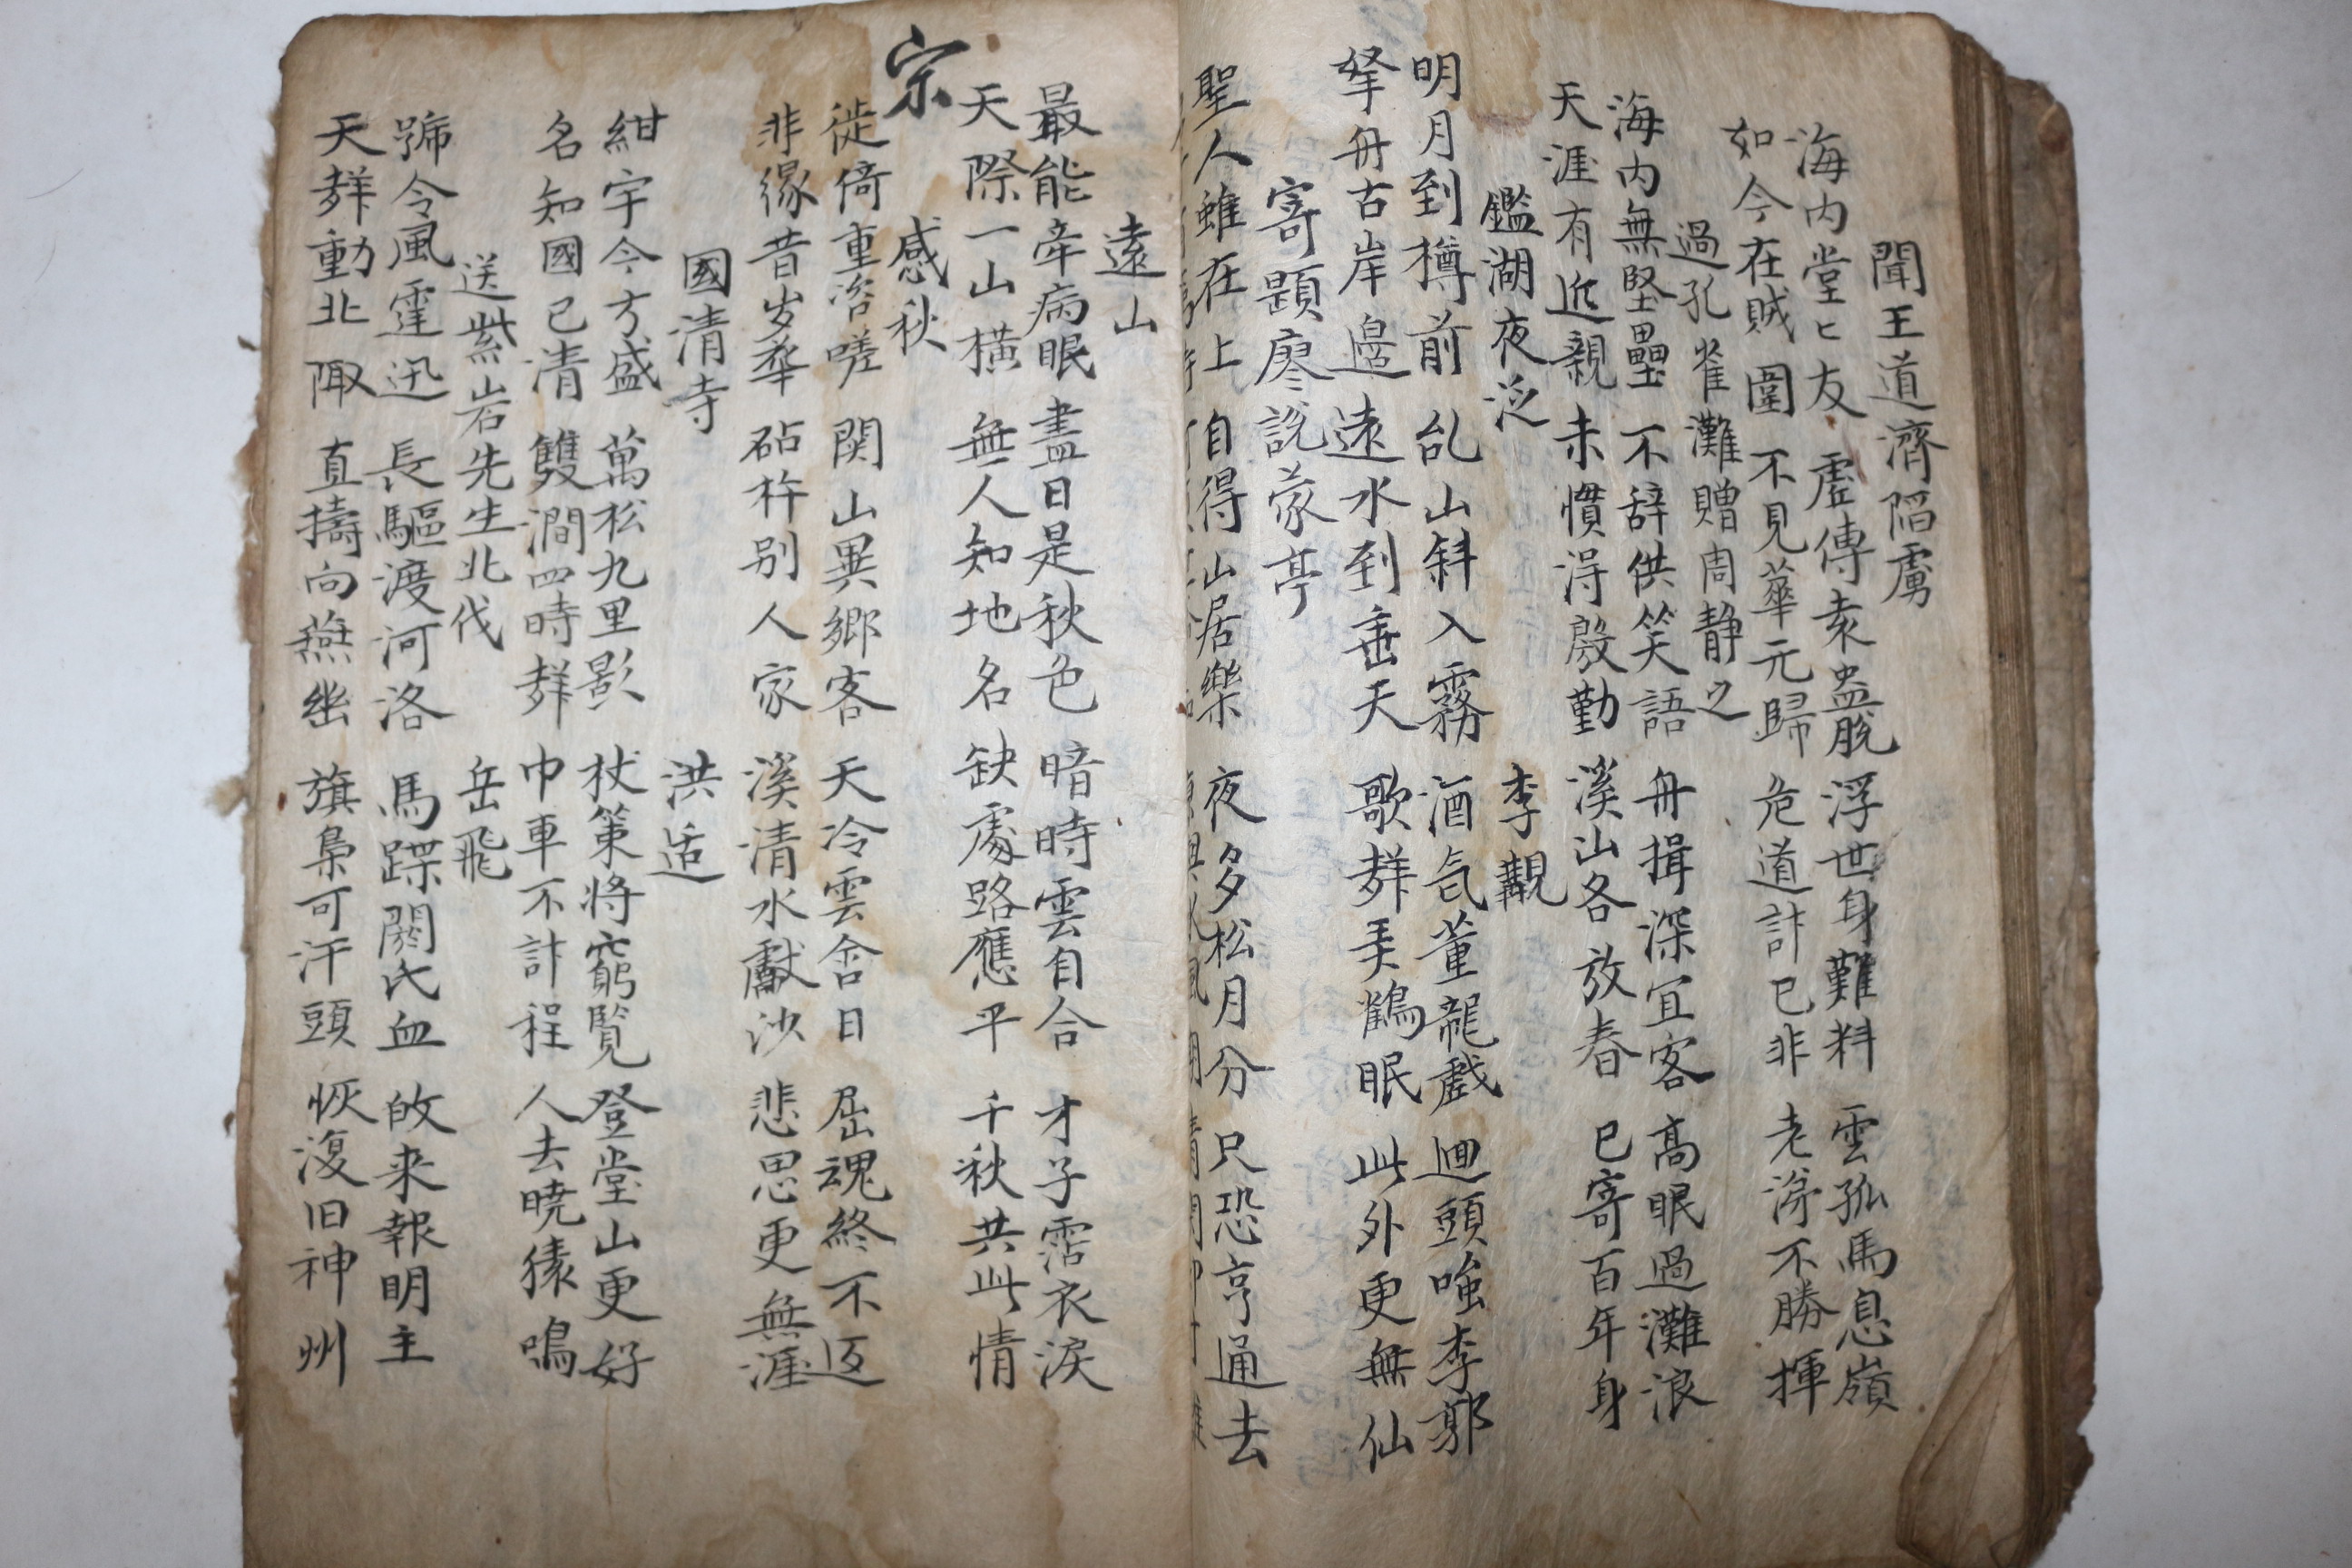 聞王道濟陷虜
海内堂〻友 虚傳袁盎脫 浮世身難料 雲孤馬息嶺
如今在賊圍 不見華元歸 危道計已非 老淚不勝揮
過孔雀灘贈周静之
海内無堅壘 不辞供笑語 舟揖深宜客 髙眠過灘浪
天涯有近親 未慣淂殷勤 溪山各放春 已寄百年身
鑑湖夜泛 李覯
明月到樽前 乱山斜入霧 酒气薫龍戱 廻頭嗤李郭
拏舟古岸邉 遠水到垂天 歌群美鶴眠 此外更無仙
寄題廖說蒙亭
聖人雖在上 自得山居樂 夜多松月分 只恐亨通去
遠山
最能牽病眼 盡日是秋色 暗時雲自合 才子霑衣淚
天際一山横 無人知地名 缺處路應平 千秋共此情
宗
感秋
徙倚重咨嗟 関山異鄉客 天冷雲含日 屈魂終不返
非緣昔岁華 砧杵别人家 溪清水獻沙 悲思更無涯
國清寺 洪适
紺宇今方盛 萬松九里影 杖策將窮覧 登堂山更好
名知國已清 雙澗四時群 巾車不計程 人去曉猿鳴
送紫岩先生北伐 岳飛
號令風霆迅 長驅渡河洛 馬蹀閼氏血 敀来報明主
天群動北陬 直擣向燕幽 旗梟可汗頭 恢復旧神州